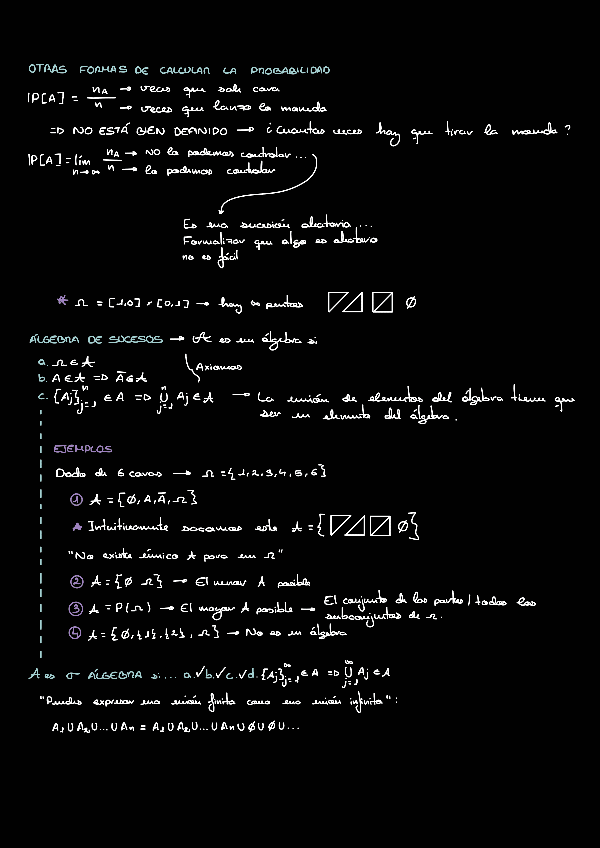 OTRAS FORMAS DE CALCULAR LA PROBABILIDAD
P[A] = nA/n → veces que sale cara
→ veces que lanzo la moneda
⇒ NO ESTÁ BIEN DEFINIDO → ¿Cuantas veces hay que tirar la moneda?
P[A] = lím n→∞ nA/n → NO la podemos controlar...
→ la podemos controlar
Es una sucesión aleatoria...
Formalizar que algo es aleatorio
no es fácil
* Ω = [1,0] × [0,1] → hay ∞ puntos ∅
ÁLGEBRA DE SUCESOS → A es un álgebra si
a. Ω ∈ A
Axiomas
b. A ∈ A ⇒ Ā ∈ A
c. {Aj}ⁿj=1 ∈ A ⇒ ⋃ⁿj=1 Aj ∈ A → La unión de elementos del álgebra tiene que
ser un elemento del álgebra.
EJEMPLOS
Dado de 6 caras → Ω = {1,2,3,4,5,6}
① A = {∅, A, Ā, Ω}
* Intuitivamente sacamos este A = { ∅}
"No existe único A para un Ω"
② A = {∅ Ω} → El menor A posible
③ A = P(Ω) → El mayor A posible → El conjunto de las partes / todos los
subconjuntos de Ω.
④ A = {∅, {1}, {2}, Ω} → No es un álgebra
A es σ ÁLGEBRA si... a.✓ b.✓ c.✓ d. {Aj}^∞j=1 ∈ A ⇒ ⋃^∞j=1 Aj ∈ A
"Puedes expresar una unión finita como una unión infinita":
A₁ ∪ A₂ ∪ ... ∪ An = A₁ ∪ A₂ ∪ ... ∪ An ∪ ∅ ∪ ∅ ∪ ...